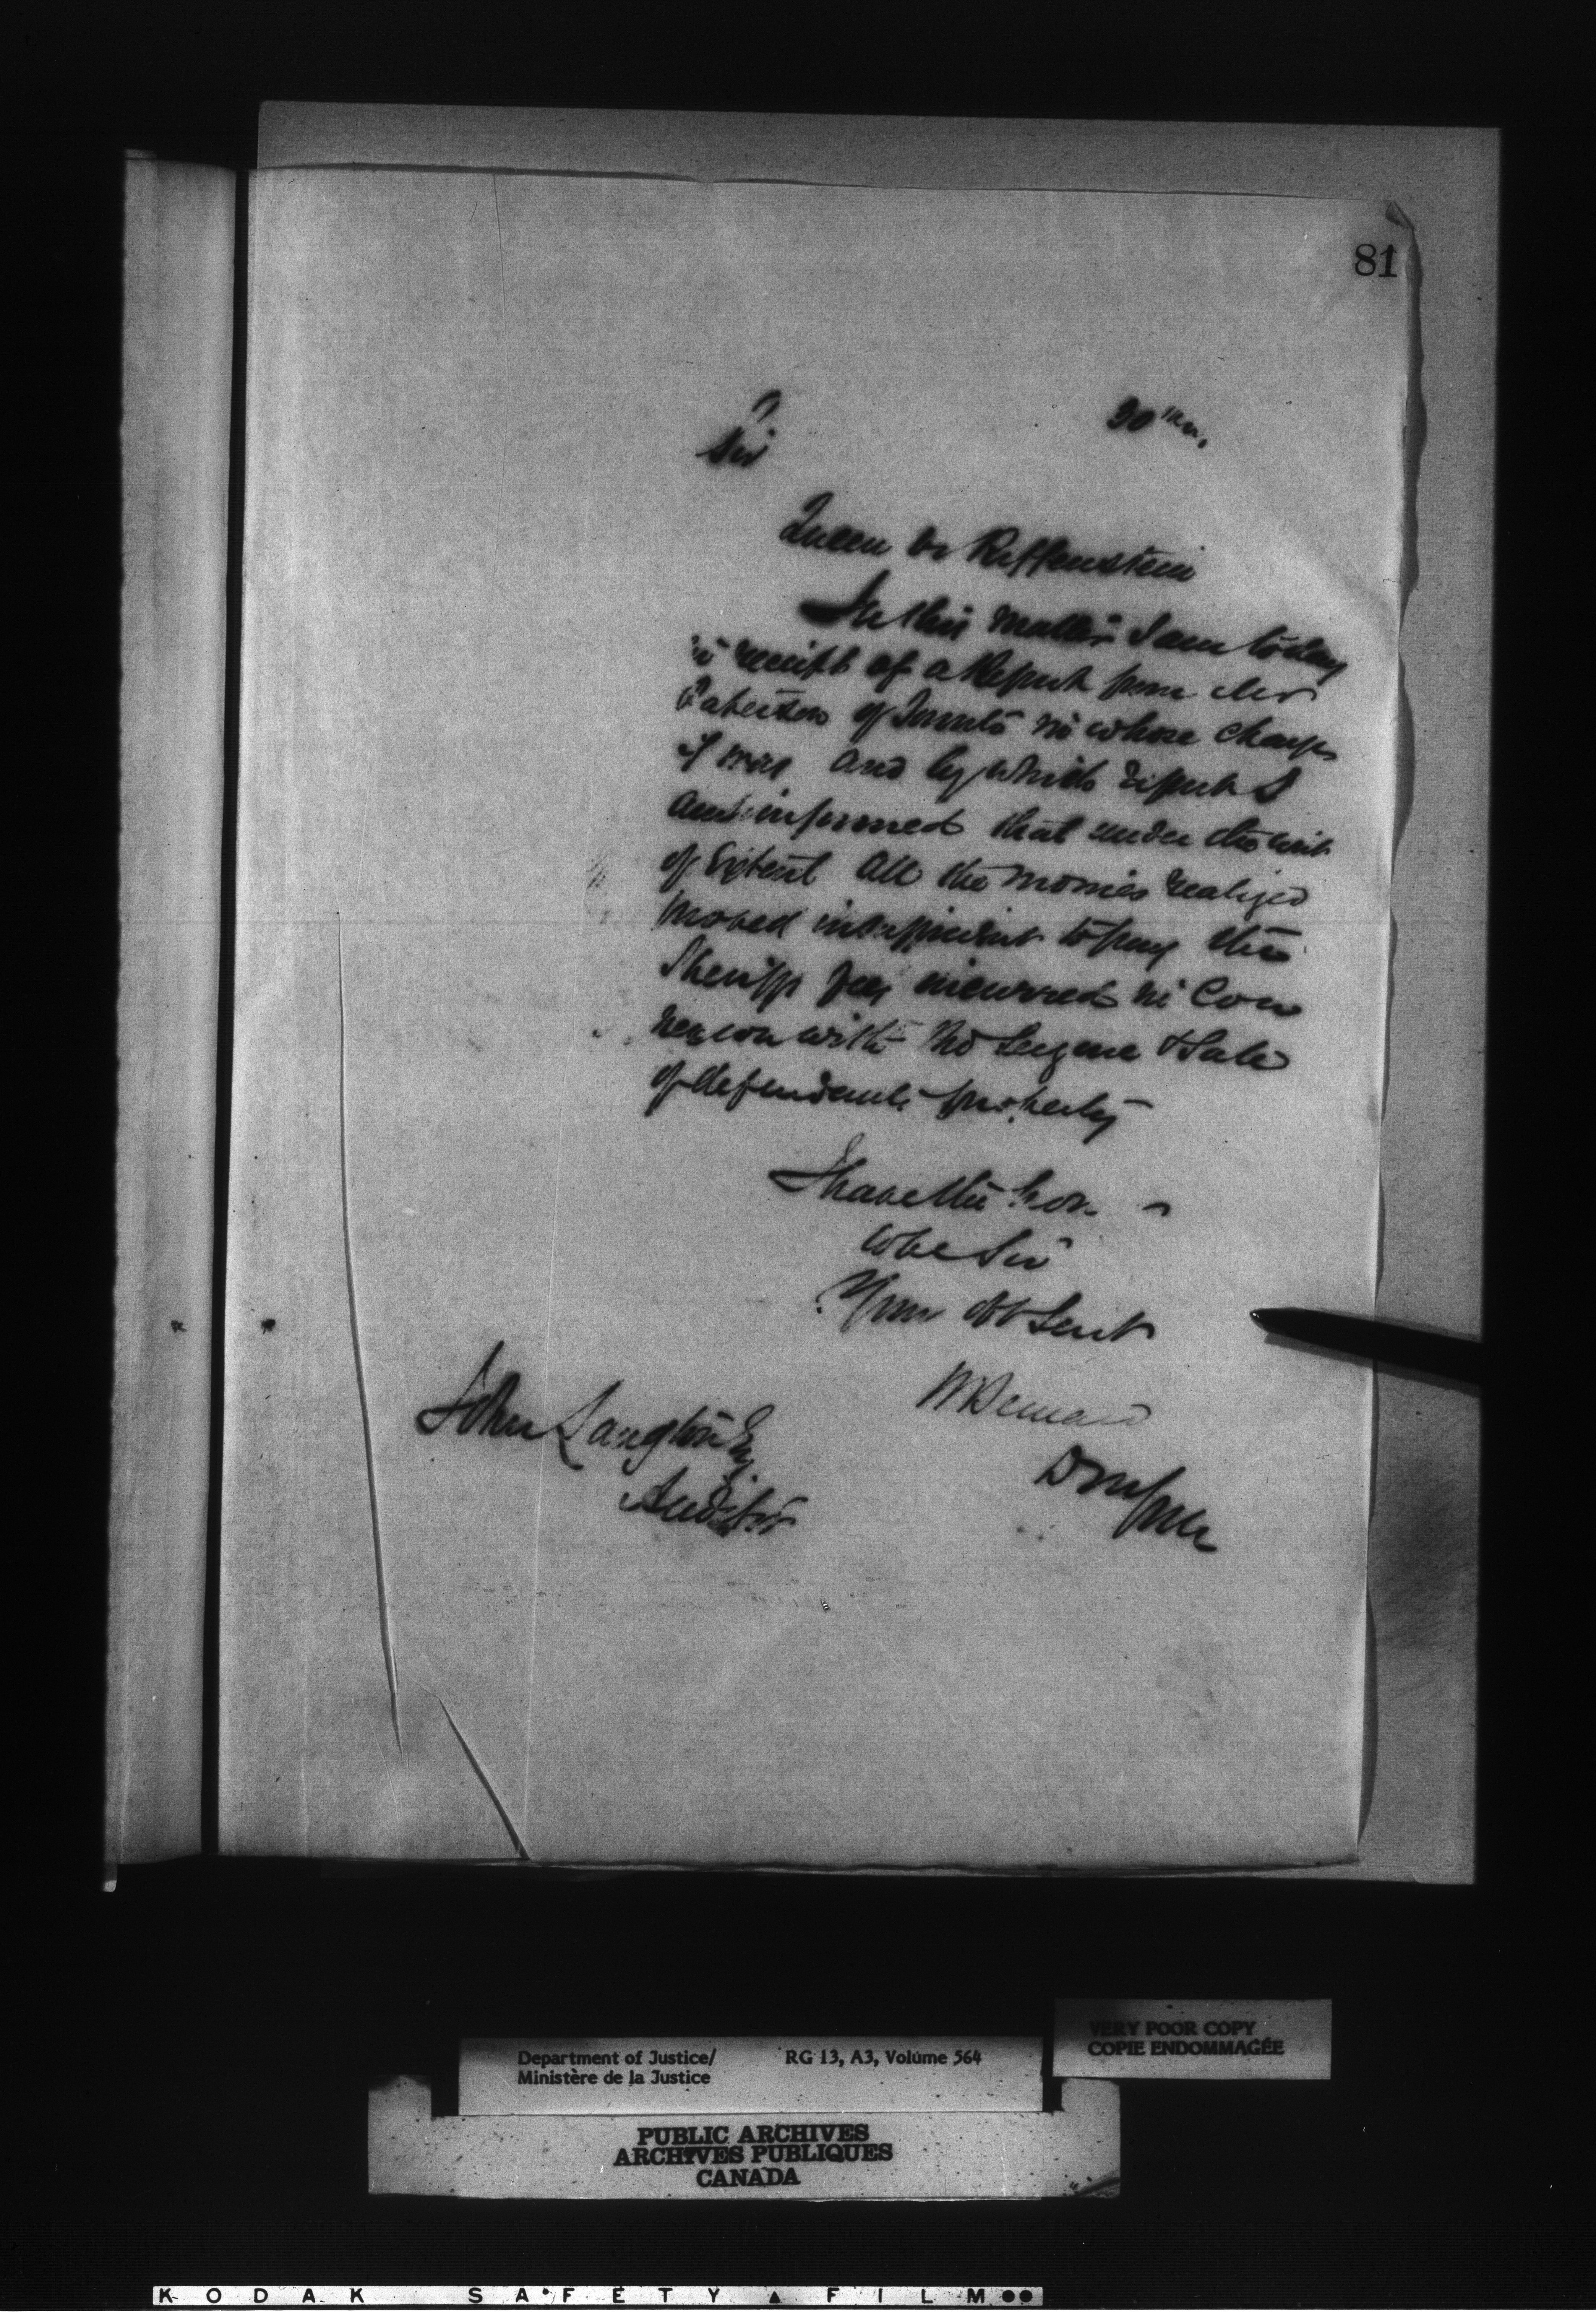 81
30 Jan.
Sir
Queen vs Reiffenstein
In this matter I am today
in receipt of a Report from Mr
Paterson of Toronto in whose charge
it was and by which report I
am informed that under the writ
of Extent all the monies realized
proved insufficient to pay the
Sheriffs fees incurred in Con
nexion with the Seizure & Sale
of defendants property
I have the hon.
to be Sir
Your Obt Servt
H Bernard
John Langton Esq
Auditor
Department of Justice/
Ministère de la Justice
RG 13, A3, Volume 564
VERY POOR COPY
COPIE ENDOMMAGÉE
PUBLIC ARCHIVES
ARCHIVES PUBLIQUES
CANADA
KODAK SAFETY FILM